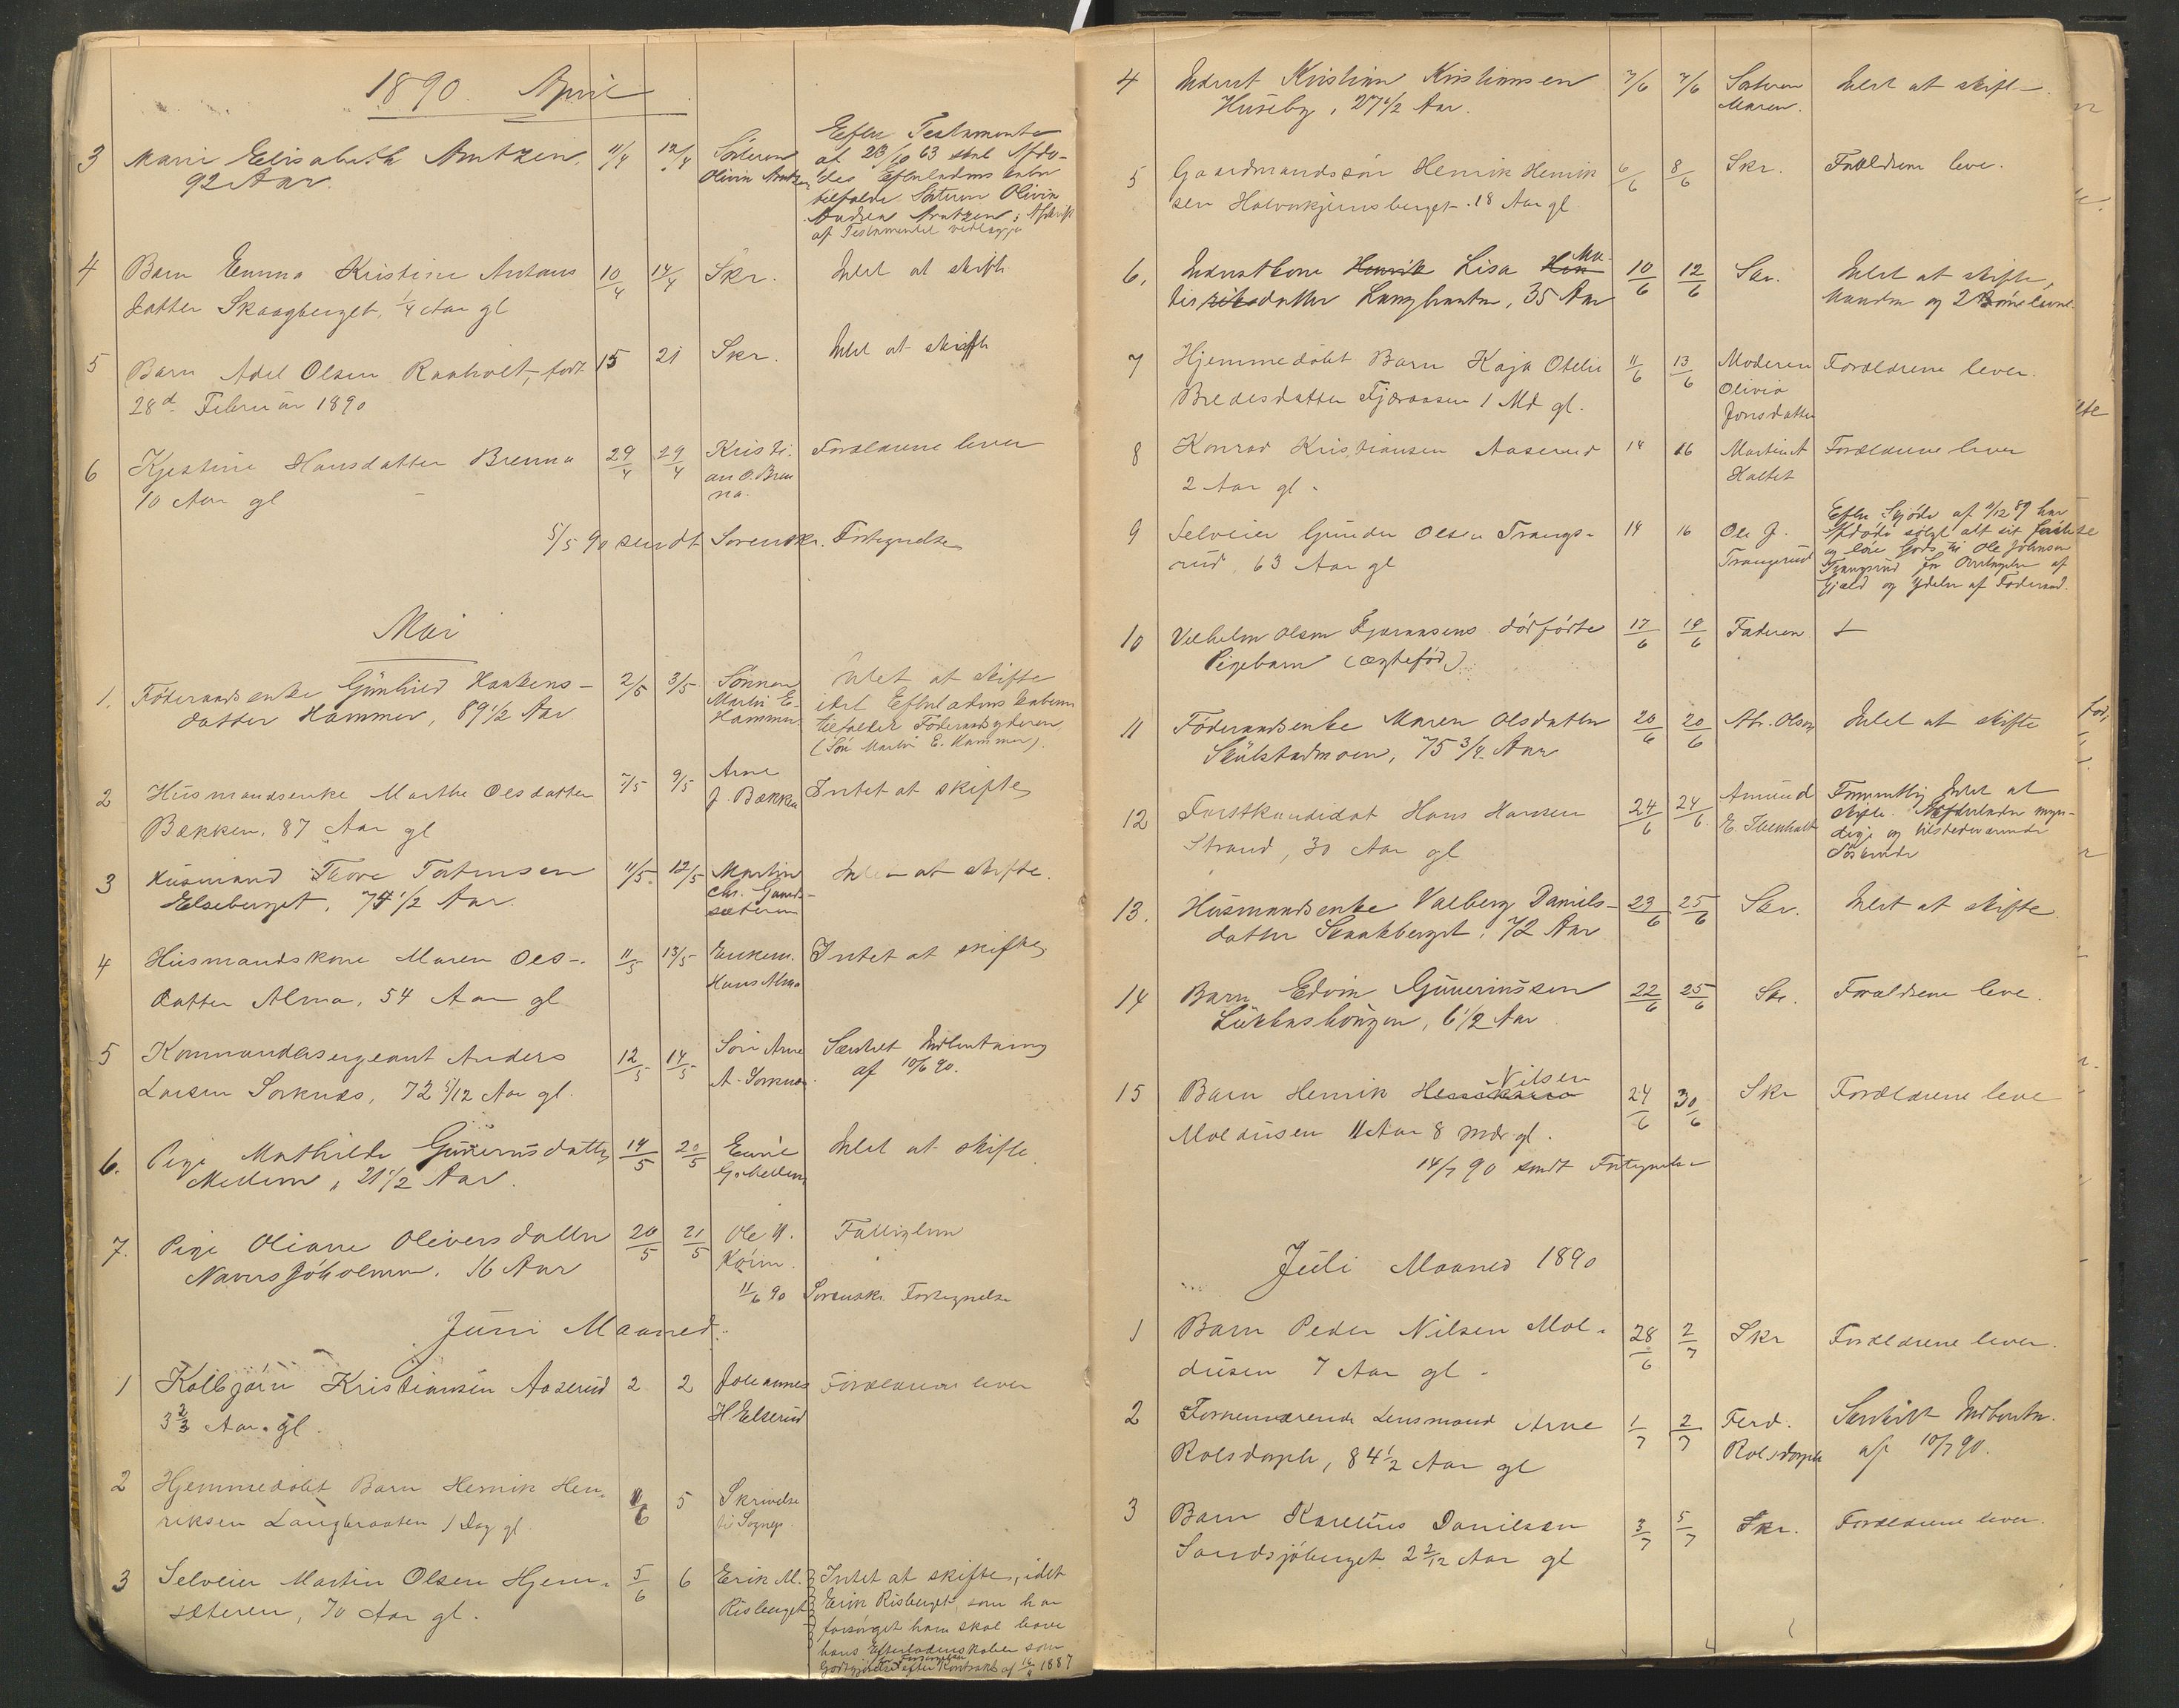 1890. April
3 Marie Elisabeth Arntzen, 11/4 12/4 Søsteren Efter Testamente
92 Aar. Olivia Arntzen af 23/10 63 skal Afdø-
des Efterladenskaber
tilfalde Søsteren Olivia
Andrea Arntzen; Afskrift
af Testamentet vedlægges
4 Barn Emma Kristine Antons 10/4 14/4 Skr. Intet at skifte
datter Skaagberget, 1/4 Aar gl
5 Barn Adel Olsen Raaholt, født 15 21 Skr. Intet at skifte
28d Februar 1890
6 Kjestine Hansdatter Brenna 29/4 29/4 Kristi- Forældrene lever
10 Aar gl an O. Bren
na.
5/5 90 sendt Sorenskr. Fortegnelse
Mai
1. Föderaadsenke Günhild Haakens- 2/5 3/5 Sønnen Intet at skifte
datter Hammer, 89 1/2 Aar Martin E. idet Efterladenskaberne
Hammer tilfalder Föderaadsyderen
(Søn Martin E. Hammer).
2 Husmandsenke Marthe Olsdatter 7/5 9/5 Arne Intet at skifte
Bækken, 87 Aar gl J. Bækken
3 Husmand Thore Torkensen 11/5 12/5 Martin Intet at skifte.
Elseberget, 74 1/2 Aar. Chr. Gaard-
sæteren
4 Husmandskone Maren Ols- 11/5 13/5 Enkem. Intet at skifte
datter Alma, 54 Aar gl Hans Alma
5 Kommandersergeant Anders 12/5 14/5 Søn Arne Særskilt Indberetning
Larsen Sorknæs, 72 5/12 Aar gl. A. Sorknæs. af 10/6 90.
6. Pige Mathilde Günerusdatter 14/5 20/5 Emil Intet at skifte
Mellem, 21 1/2 Aar. G. Mellem
7. Pige Oliane Oliversdatter 20/5 21/5 Ole N. Fattiglem
Naversjöholmen. 16 Aar Köien.
11/6 90 Sorenskr. Fortegnelse
Juni Maaned.
1 Kolbjørn Kristiansen Aaserud 2 2 Johannes Forældrene lever
3 2/3 Aar gl. H. Elserud
2 Hjemmedøbt Barn Henrik Hen- 4/6 5 Skrivelse
riksen Langbraaten 1 Dag gl. til Sognep.
3 Selveier Martin Olsen Hjem- 5/6 6 Erik M. Intet at skifte, idet
sæteren, 70 Aar gl. Risberget Erik Risberget, som har
forsörget ham skal have
hans Efterladenskaber som
Godtgjørelse for Forsørgelsen efter Kontrakt af 16/4 1887
4 Inderst Kristian Kristiansen 7/6 7/6 Søsteren Intet at skifte.
Huseby, 27 1/2 Aar. Maren.
5 Gaardmandssön Henrik Henrik 6/6 8/6 Skr. Forældrene leve.
sen Halvorkjernsberget. 18 Aar gl
6. Inderstkone Henrik Lisa Hen Ma- 10/6 12/6 Skr. Intet at skifte,
tisriksdatter Langbraaten, 35 Aar Manden og 2 Børn lever.
7 Hjemmedöbt Barn Kaja Otelie 11/6 13/6 Moderen Forældrene lever.
Bredesdatter Fjæraasen 1 Md gl. Olivia
Jonsdatter
8 Konrad Kristiansen Aaserud 14 16 Martin A Forældrene lever
2 Aar gl. Haltet
9 Selveier Gunder Olsen Trangs- 14 16 Ole J. Efter Skjöde af 11/12 89 har
rud, 63 Aar gl Trangsrud Afdöde solgt alt sit faste
og löse Gods til Ole Johnsen
Trangsrud for Overtagelse af
Gjæld og Ydelse af Föderaad.
10 Vilhelm Olsen Fjæraasens dødfødte 17/6 19/6 Faderen
Pigebarn (ægtefød)
11 Föderaadsenke Maren Olsdatter 20/6 20/6 Atr. Olsen Intet at skifte
Skulstadmoen, 75 3/4 Aar
12 Forstkandidat Hans Hansen 24/6 24/6 Amund Formentlig Intet at
Strand, 30 Aar gl E. Ibenholt skifte. Efterlader myn-
dige og tilstedeværende
Söskende
13. Husmandsenke Valborg Daniels- 23/6 25/6 Skr. Intet at skifte
datter Skaakberget, 72 Aar
14 Barn Edvin Günerinssen 22/6 25/6 Skr. Forældrene leve.
Lükkashöugen, 6 1/2 Aar
15 Barn Henrik Nilsen 24/6 30/6 Skr Forældrene leve
Moldusen 11 Aar 8 Mdr gl.
14/7 90 sendt Fortegnelse
Juli Maaned 1890
1 Barn Peder Nilsen Mol- 28/6 2/7 Skr Forældrene lever.
dusen 7 Aar gl.
2 Forhenværende Lensmand Arne 1/7 2/7 Ferd. Særskilt Indberetn.
Rolsdorph, 84 1/2 Aar gl Rolsdorph af 10/7 90.
3 Barn Karelius Danielsen 3/7 5/7 Skr. Forældrene lever.
Sandsjöberget 2 2/12 Aar gl